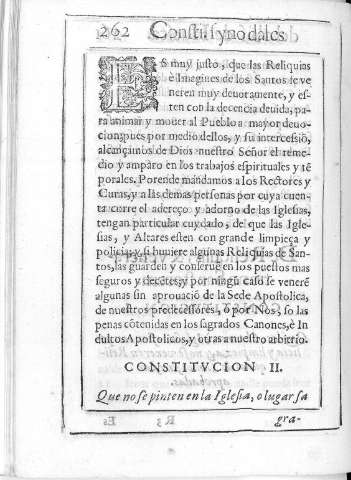 262 Constit. synodales
ES muy justo, que las Reliquias
è Imagines de los Santos se ve
neren muy deuotamente, y es-
ten con la decencia deuida, pa-
ra animar y mouer al Pueblo a mayor deuo-
cion, pues por medio dellos, y su intercessiõ,
alcançamos de Dios nuestro Señor el reme-
dio y amparo en los trabajos espirituales y tẽ
porales. Porende mandamos a los Rectores y
Curas, y a las demas personas por cuya cuen-
ta corre el adereço y adorno de las Iglesias,
tengan particular cuydado, de que las Igle-
sias, y Altares esten con grande limpieça y
policia; y si huuiere algunas Reliquias de San-
tos, las guarden y conseruẽ en los puestos mas
seguros y decẽtes, y por ningũ caso se venerẽ
algunas sin aprouaciõ de la Sede Apostolica,
de nuestros predecessores, o por Nos, so las
penas cõtenidas en los sagrados Canones, è In
dultos Apostolicos, y otras a nuestro arbitrio.
CONSTITVCION II.
Que no se pinten en la Iglesia, o lugar sa
gra-